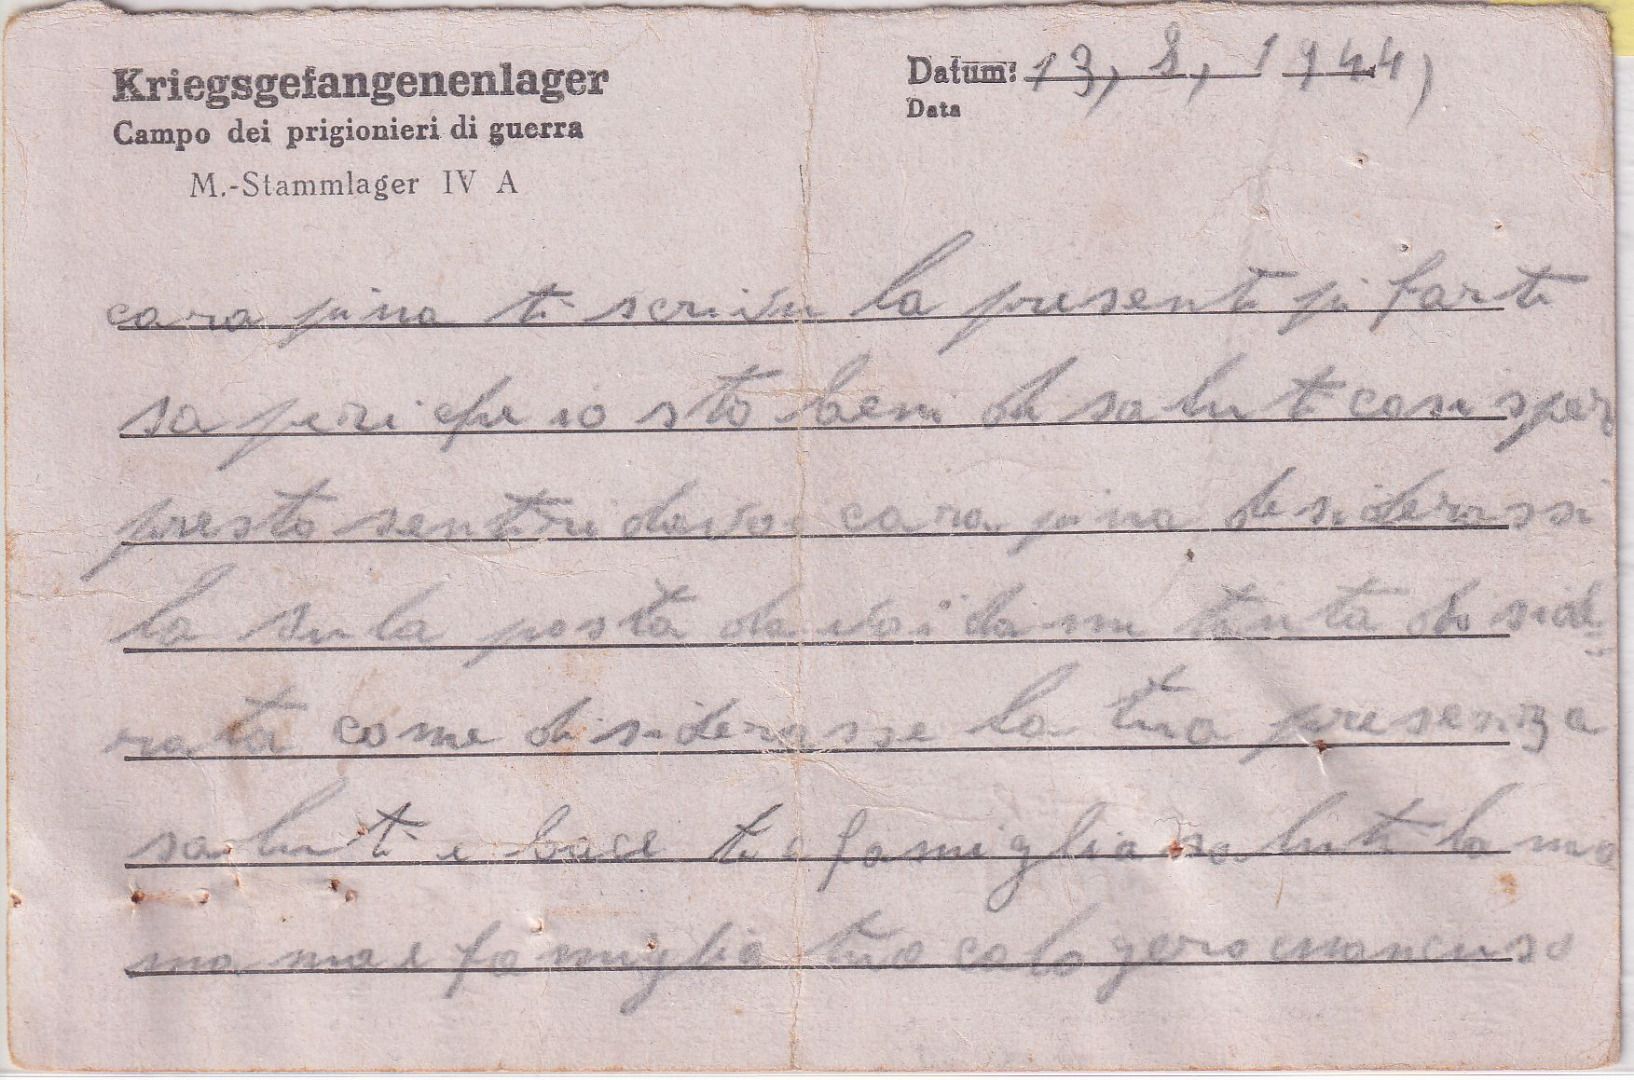 Kriegsgefangenenlager
Campo dei prigionieri di guerra
M.-Stammlager IV A
Datum: 13, 8, 1944,
Data
cara pina ti scrivu la presenti pi farti
saperi che io sto beni di saluti cosi sper
presto sentiri da voi cara pina desiderassi
la sula posta da voi da mi tanta deside=
rata come disiderasse la tua presenza
saluti e bace te e famiglia saluti la ma
ma mae famiglia tuo calogero mancuso